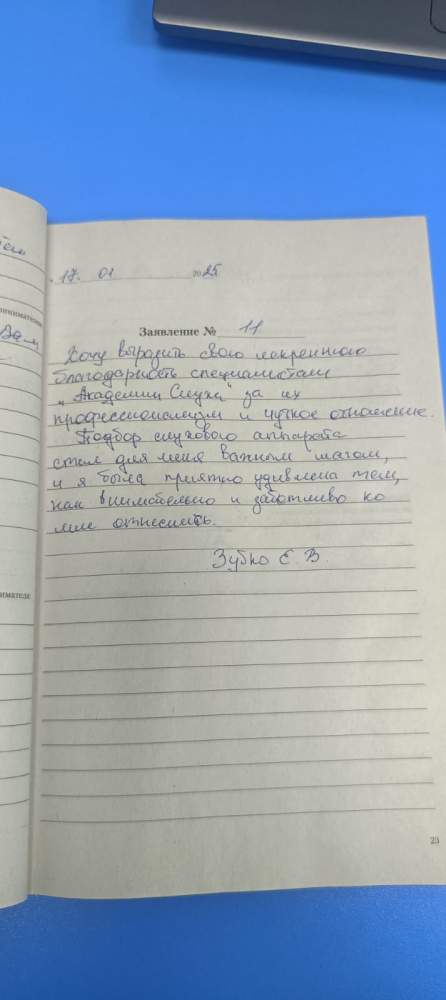 17. 01 2025
Заявление № 11
Хочу выразить свою искреннюю
благодарность специалистам
"Академии Слуха" за их
профессионализм и чуткое отношение.
Подбор слухового аппарата
стал для меня важным шагом,
и я была приятно удивлена тем,
как внимательно и заботливо ко
мне отнеслись.
Зубко Е. В.
23